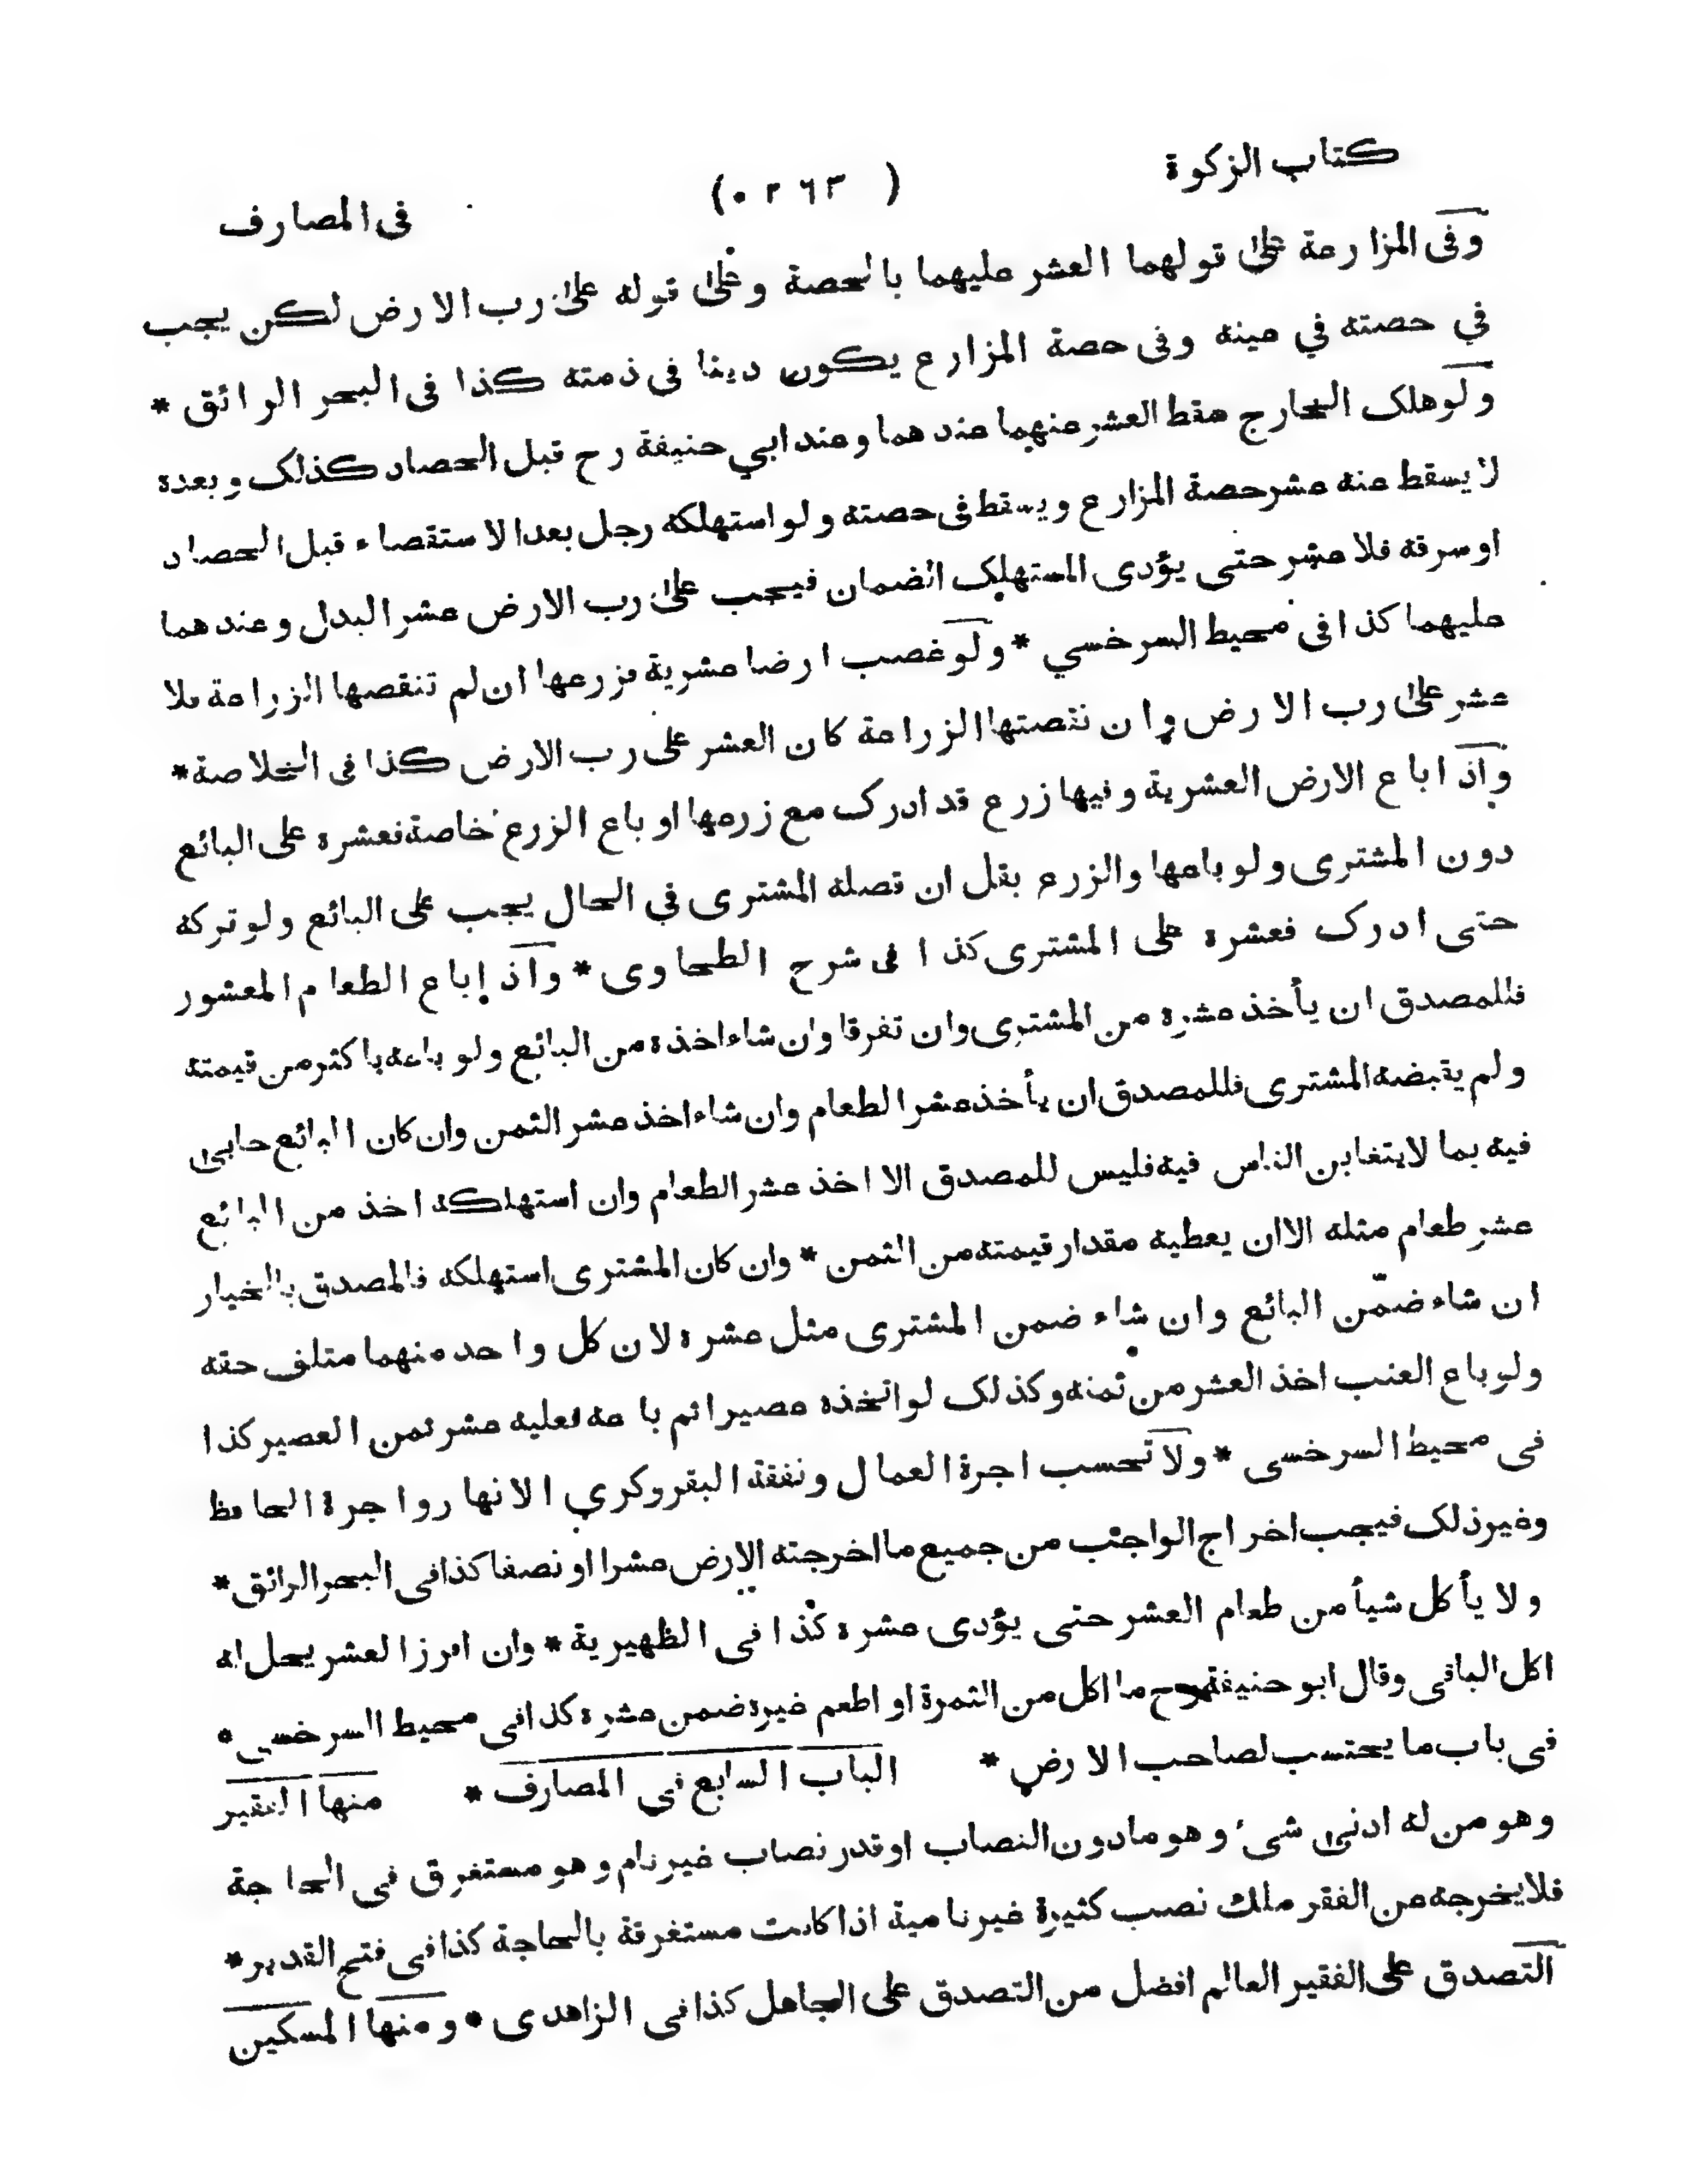 كتاب الزكوة
( ٠٢٦٣ )
فى المصارف
وفى المزارعة على قولهما العشر عليهما بالحصة وعلى قوله على رب الارض لكن يجب
في حصته في عينه وفى حصة المزارع يكون دينا فى ذمته كذا فى البحر الرائق *
ولو هلك الخارج سقط العشر منهما عندهما وعند ابي حنيفة رح قبل الحصاد كذلك وبعده
لا يسقط عنه عشر حصة المزارع ويسقط فى حصته ولو استهلكه رجل بعد الاستقصاء قبل الحصاد
او سرقه فلا عشر حتى يؤدى المستهلك الضمان فيجب على رب الارض عشر البدل وعندهما
عليهما كذا فى محيط السرخسي * ولو غصب ارضا عشرية فزرعها ان لم تنقصها الزراعة فلا
عشر على رب الارض وان نقصتها الزراعة كان العشر على رب الارض كذا فى الخلاصة *
واذا باع الارض العشرية وفيها زرع قد ادرك مع زرعها او باع الزرع خاصة فعشره على البائع
دون المشترى ولو باعها والزرع بقل ان فصله المشترى في الحال يجب على البائع ولو تركه
حتى ادرك فعشره على المشترى كذا فى شرح الطحاوى * واذا باع الطعام المعشور
فللمصدق ان يأخذ عشره من المشترى وان تفرقا وان شاء اخذه من البائع ولو باعه باكثر من قيمته
ولم يقبضه المشترى فللمصدق ان يأخذ عشر الطعام وان شاء اخذ عشر الثمن وان كان البائع حابى
فيه بما لا يتغابن الناس فيه فليس للمصدق الا اخذ عشر الطعام وان استهلكه اخذ من البائع
عشر طعام مثله الا ان يعطيه مقدار قيمته من الثمن * وان كان المشترى استهلكه فالمصدق بالخيار
ان شاء ضمّن البائع وان شاء ضمن المشترى مثل عشره لان كل واحد منهما متلف حقه
ولو باع العنب اخذ العشر من ثمنه وكذلك لو اتخذه عصيرا ثم باعه فعليه عشر ثمن العصير كذا
فى محيط السرخسى * ولا تحسب اجرة العمال ونفقة البقر وكري الانهار واجرة الحافظ
وغير ذلك فيجب اخراج الواجب من جميع ما اخرجته الارض عشرا او نصفا كذا فى البحر الرائق *
ولا يأكل شيأ من طعام العشر حتى يؤدى عشره كذا فى الظهيرية * وان افرز العشر يحل له
اكل الباقى وقال ابو حنيفة رح ما اكل من الثمرة او اطعم غيره ضمن عشره كذا فى محيط السرخسى *
فى باب ما يحتسب لصاحب الارض * الباب السابع فى المصارف * منها الفقير
وهو من له ادنى شئ وهو مادون النصاب او قدر نصاب غير نام وهو مستغرق فى الحاجة
فلا يخرجه من الفقر ملك نصب كثيرة غير نامية اذا كانت مستغرقة بالحاجة كذا فى فتح القدير *
التصدق على الفقير العالم افضل من التصدق على الجاهل كذا فى الزاهدى * ومنها المسكين